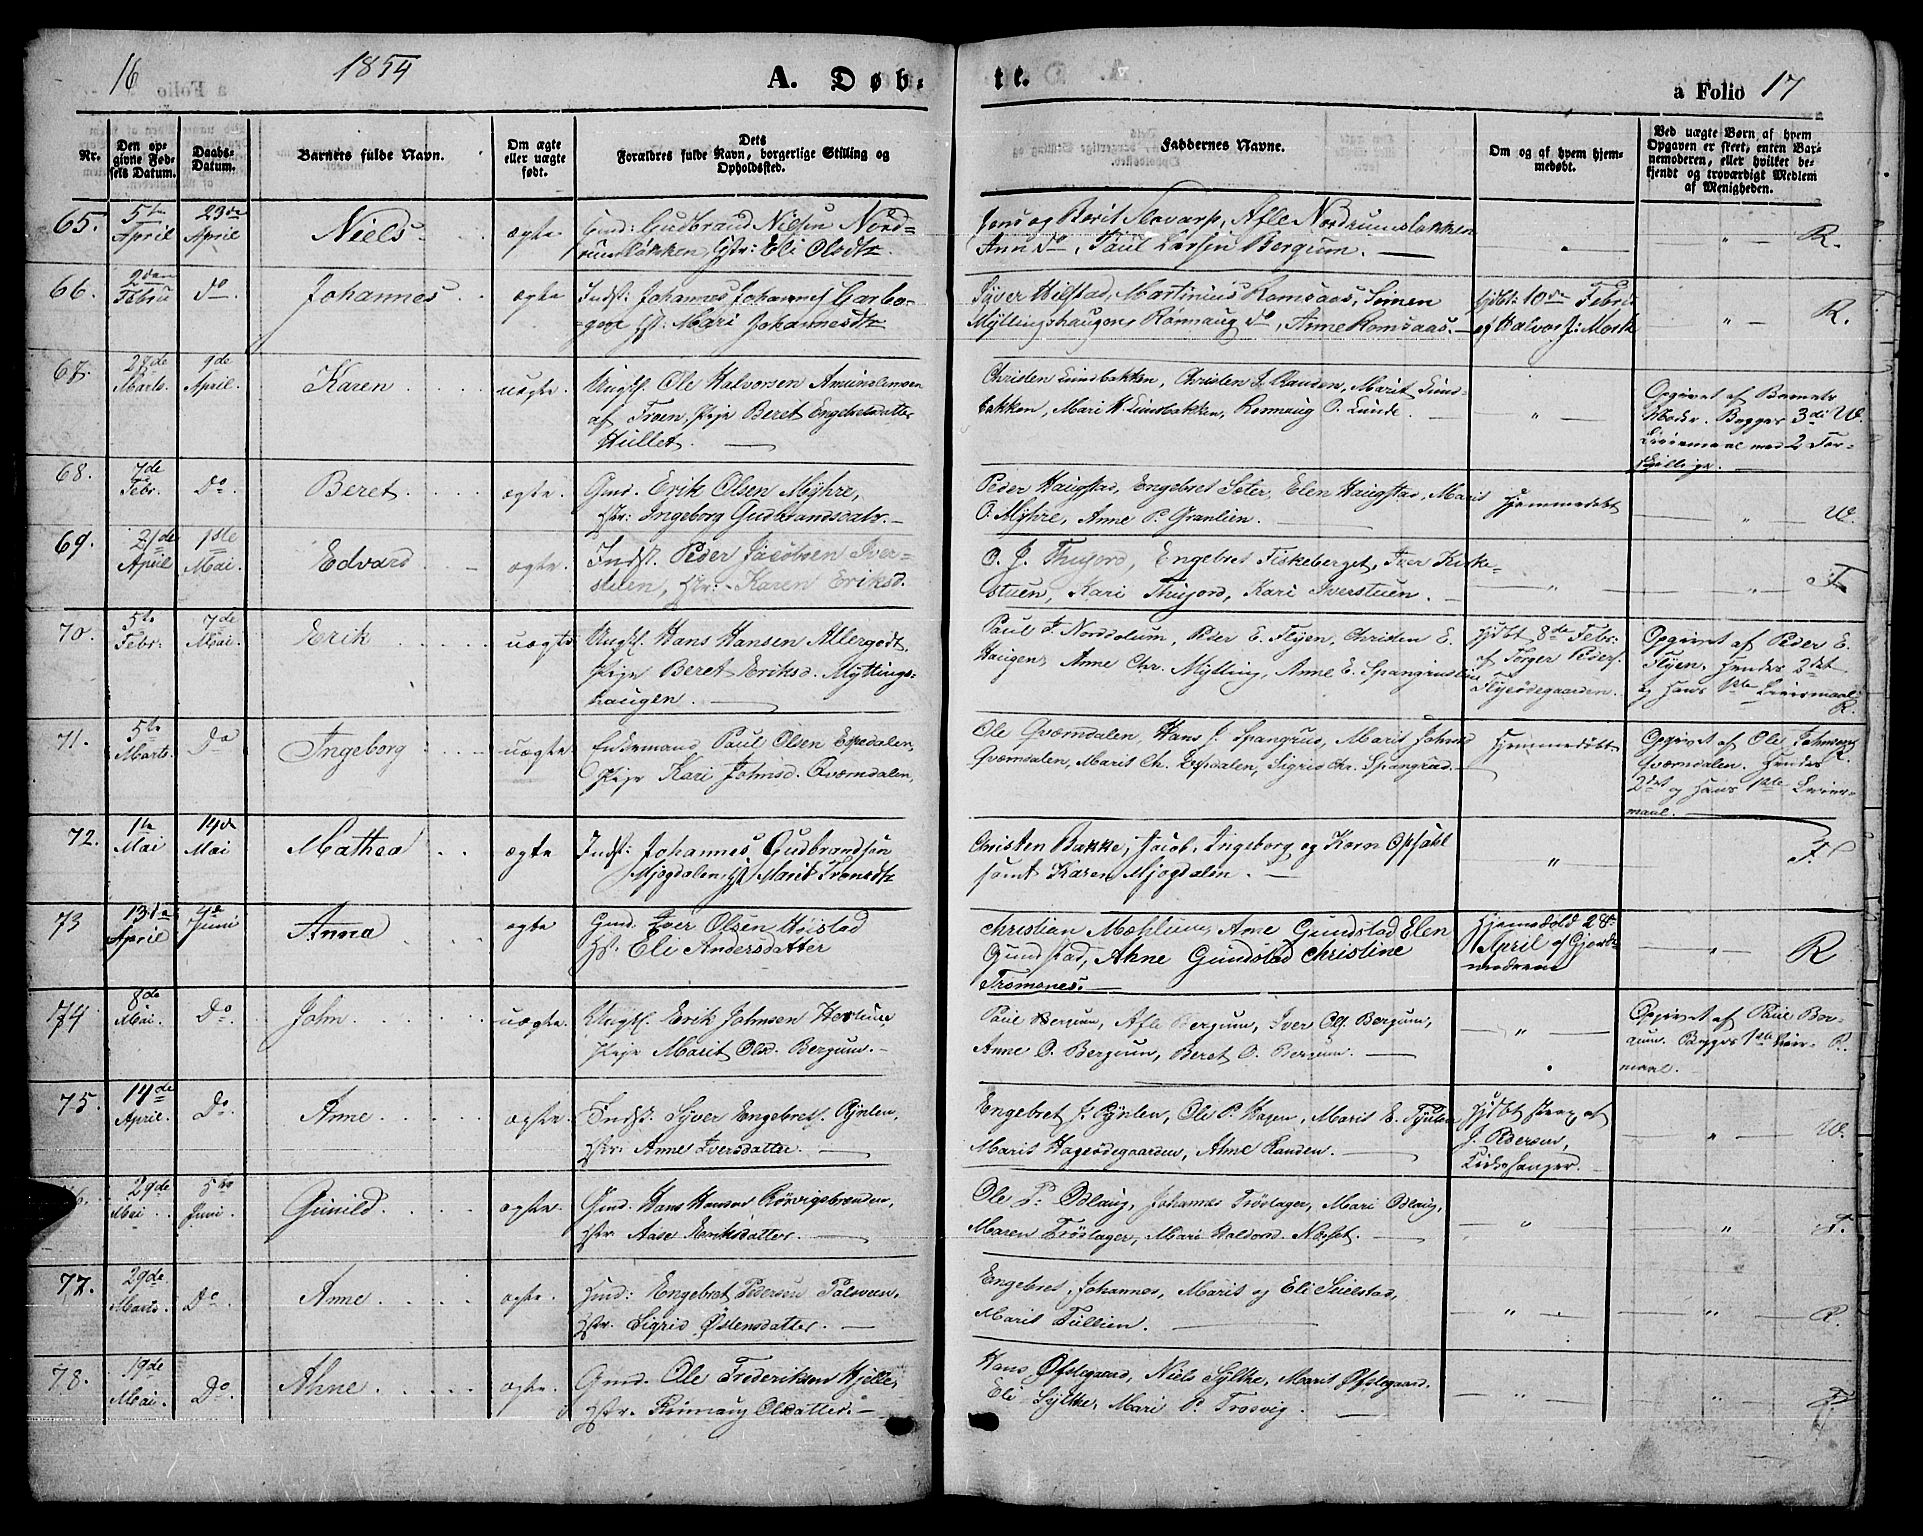 16 1854 A. Døb-
te. a Folio 17
Nr.
Den opgivne Fødsels Datum.
Daabs-Datum.
Barnets fulde Navn.
Om ægte eller uægte født.
Dets Forældres fulde Navn, borgerlige Stilling og Opholdssted.
Faddernes Navne.
Om og af hvem hjemmedøbt.
Ved uægte Børn af hvem Opgaven er skeet, enten Barnemoderen, eller hvilket bekjendt og troværdigt Medlem af Menigheden.
65. 5te April 23de April Niels ægte Gmd: Gudbrand Nilsen Nord-
Ole Olsdtr.
Ane Do, Paul Larsen Bergum. " R.
66. 2den Febru Do Johannes ægte Indst: Johannes Johannes Garbo-
gen Hst: Mari Johannesdtr
Syver Hilstad, Martinius Romsaas, Simen
Myllingshaugen, Rønnaug Do, Anne Romsaas.
hjdbt: 10de Febr. af Halvor J: Mork
" R.
67. 28de Marts. 9de April. Karen uægte. Ungk. Ole Halvorsen
af Troen, Pige Beret Engebretsdatter
Hullet.
Christen Lundbakken, Christen J. Randen, Marit Lund-
bakken, Mari H. Lundbakken, Rønnaug O. Lunde. "
Opgivet af Barnets
Moder. Begges 3de W.
Leiermaal med 2 For-
skillige.
68. 7de Febr. Do. Beret. ægte. Gmd. Erik Olsen Myhre,
Hst: Ingeborg Gudbrandsdatr.
Peder Haugstad, Engebret Seter, Elen Haugstad, Marit
O. Myhre, Anne P. Granlien.
Hjemmedøbt " W.
69. 21de April 1ste Mai Edvard ægte. Indst. Peder Jacobsen Iver-
stuen, Hst: Karen Eriksd.
O. J. Thujord, Engebret Fiskeberget, Iver Kirke-
stuen, Kari Thujord, Kari Iverstuen. " " F.
70. 5te Febr: 7de Mai Erik uægte Ungk. Hans Hansen Allergodt,
Pige Beret Eriksd. Myttings-
haugen.
Paul F. Norddalum, Peder E. Flyen, Christen E.
Haugen, Anne Chr. Mytting, Anne E. Spangrudlien
hjdbt 8de Febr:
af Torger Peders.
Flyeødegaarden.
Opgivet af Peder E.
Flyen, Hendes 2det
og Hans 1ste Leiermaal
R.
71. 5te Marts. Do Ingeborg uægte. Enkemand Paul Olsen Espedalen,
Pige Kari Johnsd. Qværndalen,
Ole Qværndalen, Hans J. Spangrud, Marit Johnsd
Qværndalen, Marit Ch. Espedalen, Sigrid Chr. Spangrud.
Hjemmedøbt.
Opgivet af Ole Johnsen
Qværndalen. Hendes R.
2det og Hans 1ste Leier-
maal.
72. 1te Mai 14de Mai Mathea ægte Indst: Johannes Gudbrandsen
Mjogdalen, Hst Marit Tronsdtr
Christen Bakke, Jacob, Ingeborg og Karn Opsahl
samt Karen Mjogdalen. " F.
73 13de April 4de Juni Anna ægte Gmd. Iver Olsen Høistad
Hst. Eli Andersdatter
Christian Mæhlum, Ane Gundstad Elen
Gundstad, Ahne Gundstad Christine
Tromsnes.
Hjemdøbt 28
April af Gjorde-
moderen
" R
74 8de Mai. Do. John. uægte. Ungk. Erik Johnsen
Pige Marit Olsd. Bergum.
Paul Bergum, Afle Bergum, Iver Ols. Bergum,
Anne O. Bergum, Beret O. Bergum. "
Opgivet af Paul Ber-
gum. Begges 1ste Leier- R.
maal.
75. 14de April. Do. Anne ægte. Indst. Syver Engebrets. Rynlen,
Hst: Anne Iversdatter.
Engebret J. Rynlen, Ole P. Hagen, Marit E. Rynlen,
Marit Hageødegaarden, Ahne Randen.
hjdbt strax af
J. Pedersen,
Kirkesanger.
" W.
76. 29de Mai. 5te Juni. Gunild ægte. Gmd. Hans Hansen Rørvigsbrenden,
Hst. Aase Eriksdatter.
Ole P. Odlaug, Johannes Trøslager, Mari Odlaug,
Maren Trøslager, Mari Haldorsd. Næset. " " F.
77. 29de Marts. Do. Anne ægte. Hmd: Engebret Pedersen Palsveen,
Hst. Sigrid Østensdatter.
Engebret, Johannes, Marit og Eli Seielstad,
Marit Tullien. " " R.
78. 19de Mai. Do. Ahne ægte. Gmd. Ole Frederiksen Hjelle,
Hst. Rønnaug Olsdatter.
Hans Øfslegaard, Niels Sylthe, Marit Øfslegaard,
Eli Sylthe, Mari P. Trosvig. " " F.